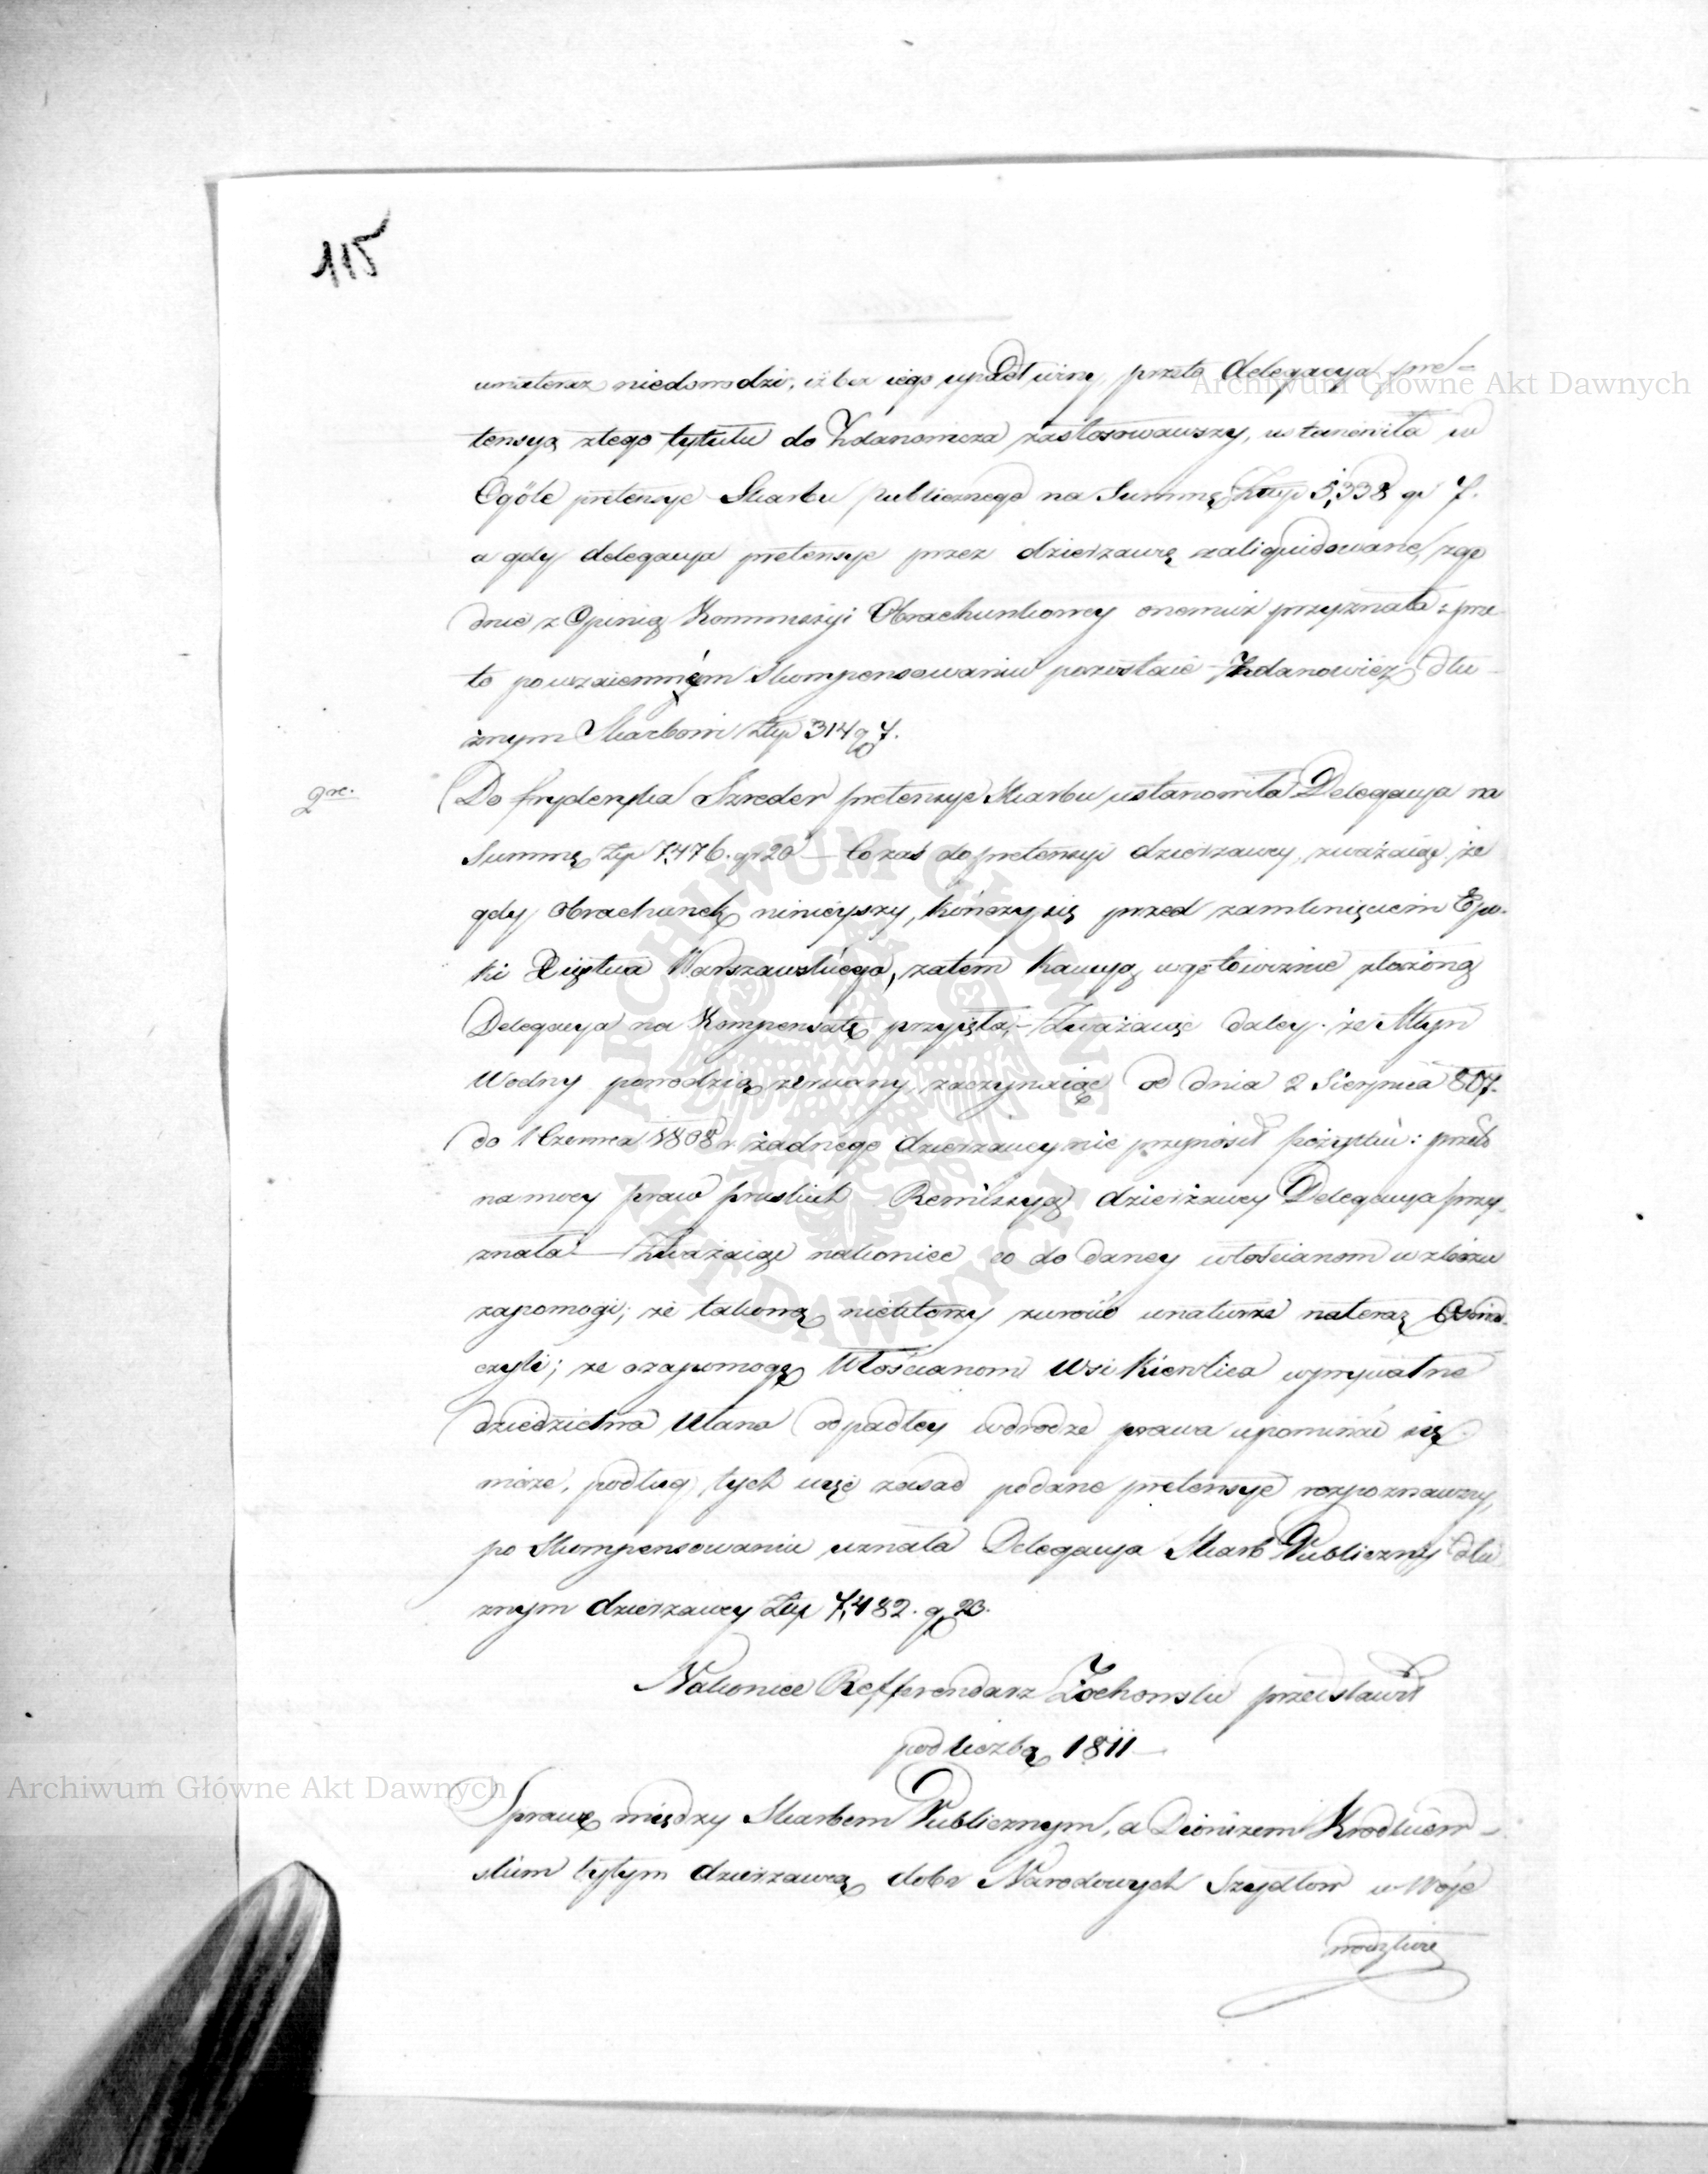 115
niedowodzi, iż bez iego upadł winy, przeto delegacya pre-
tensyą z tego tytułu do Zdanowicza zastosowawszy, ustanowiła w
Ogóle pretensye Skarbu publicznego na Summę Złłp 5,338 gr 7.
a gdy delegacya pretensye przez dzierzawcę zaliquidowane, zgo
dnie z Opinią Kommissyi Obrachunkowey onemuż przyznała: prze
to po wzaiemném Skompensowaniu pozostaie Zdanowicz dłu
żnym Skarbowi złłp 314 gr 7.
2re.
Do Fryderyka Szreder pretensye Skarbu ustanowiła Delegacya na
Summę złp 7,476. gr 20 — Co zaś do pretensyi dzierzawcy, zważaiąc, że
gdy Obrachunek ninieyszy, kończy się przed zamknięciem Epo-
ki Xięstwa Warszawskiego, zatem kaucyą w gotowiznie złożoną
Delegacya na Kompensatę przyięła, — Zważaiąc daley. że Młyn
Wodny powodzią zerwany, zaczynaiąc od dnia 2 Sierpnia 807.
do 1 Czerwca 1808 r żadnego dzierzawcy nie przynosił pożytku: przeto
na mocy praw pruskich Remissyą dzierżawcy Delegacya przy-
znała — Zważaiąc nakoniec co do daney włościanom w zbożu
zapomogi; że takową niektórzy zwrócić w naturze na teraz Oświad-
czyli; że o zapomogę Włościanom Wsi Kierlica w prywatne
dziedzictwo Ulana odpadłey w drodze prawa upominać się
może, podług tych więc zasad podane pretensye rozpoznawszy,
po Skompensowaniu uznała Delegacya Skarb Publiczny dłu
żnym dzierzawcy Złp 7,482. gr 23.
Nakoniec Refferendarz Zochowski przedstawił
pod liczbą 1811 —
Sprawę między Skarbem Publicznym, a Dionizem Krodkiew-
skim byłym dzierzawcą dobr Narodowych Szydłow w Woje
wodztwie
Archiwum Główne Akt Dawnych
Archiwum Główne Akt Dawnych
ARCHIWUM GŁÓWNE AKT DAWNYCH